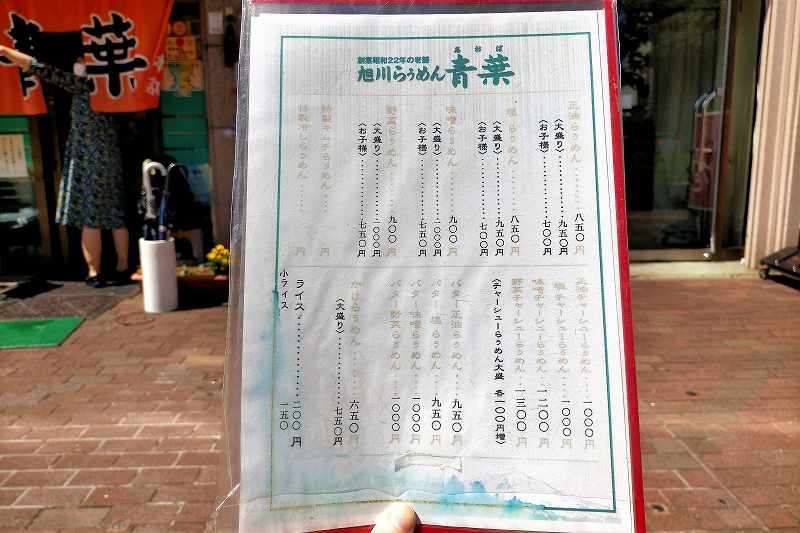 青葉
創業昭和22年の老舗
あおば
旭川らぅめん青葉
正油らぅめん‥八五〇円
〈大盛り〉‥九五〇円
〈お子様〉‥七〇〇円
塩らぅめん‥八五〇円
〈大盛り〉‥九五〇円
〈お子様〉‥七〇〇円
味噌らぅめん‥九〇〇円
〈大盛り〉‥一〇〇〇円
〈お子様〉‥七五〇円
野菜らぅめん‥九〇〇円
〈大盛り〉‥一〇〇〇円
〈お子様〉‥七五〇円
特製キムチらぅめん‥円
特製冷しらぅめん‥円
正油チャーシューらぅめん‥一〇〇〇円
塩チャーシューらぅめん‥一〇〇〇円
味噌チャーシューらぅめん‥一二〇〇円
野菜チャーシューらぅめん‥一三〇〇円
〈チャーシューらぅめん大盛 各一〇〇円増〉
バター正油らぅめん‥九五〇円
バター塩らぅめん‥九五〇円
バター味噌らぅめん‥一〇〇〇円
バター野菜らぅめん‥一〇〇〇円
かけらぅめん‥六五〇円
〈大盛り〉‥七五〇円
ライス‥二〇〇円
小ライス 一五〇